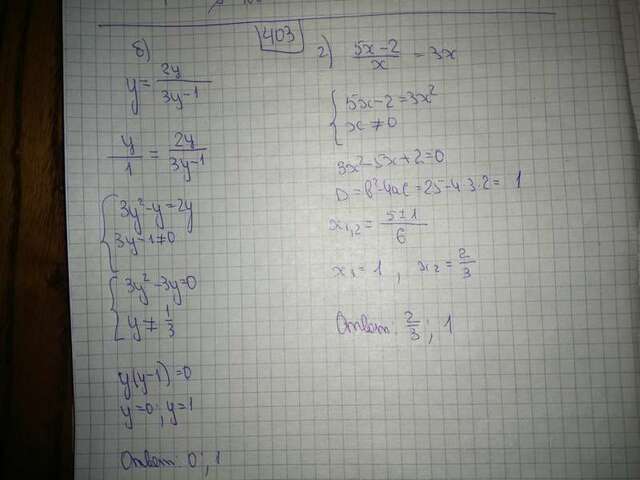 403
б)
y = 2y / 3y-1
y / 1 = 2y / 3y-1
{ 3y²-y=2y
3y-1≠0
{ 3y²-3y=0
y ≠ 1/3
y(y-1)=0
y=0; y=1
Ответ: 0; 1
г) 5x-2 / x = 3x
{ 5x-2=3x²
x≠0
3x²-5x+2=0
D=b²-4ac=25-4·3·2= 1
x₁,₂= 5±1 / 6
x₁=1, x₂= 2/3
Ответ: 2/3; 1